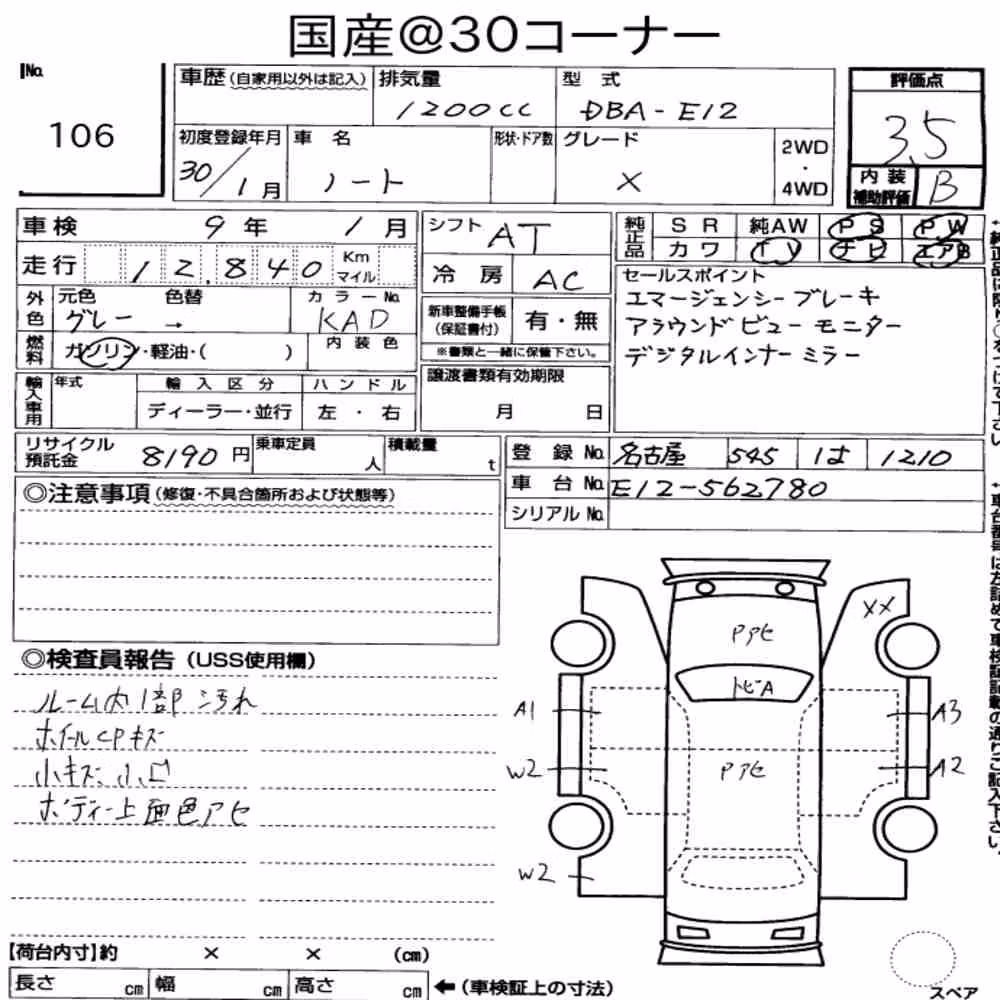 国産@30コーナー
No. 106
車歴 (自家用以外は記入)
排気量 1200cc
型式 DBA-E12
評価点 3.5
初度登録年月 30/1月
車名 ノート
形状・ドア数
グレード X
2WD・4WD
内装補助評価 B
車検 9年 1月
シフト AT
純正品 SR 純AW PS PW
カワ TV ナビ エアB
走行 12,840 Km マイル
冷房 AC
セールスポイント
エマージェンシーブレーキ
アラウンドビューモニター
デジタルインナーミラー
外色 元色 グレー → 色替
カラーNo. KAD
新車整備手帳(保証書付) 有・無
※書類と一緒に保管下さい。
燃料 ガソリン・軽油・( )
内装色
輸入車用 年式
輸入区分 ディーラー・並行
ハンドル 左・右
譲渡書類有効期限
月 日
リサイクル預託金 8190円
乗車定員 人
積載量 t
登録No. 名古屋 545 は 1210
車台No. E12-562780
シリアルNo.
◎注意事項(修復・不具合箇所および状態等)
◎検査員報告(USS使用欄)
ルーム内1部汚れ
ホイールCPキズ
小キズ、小凹
ボディー上面色アセ
XX
Pアセ
トビA
A1
A3
W2
Pアセ
A2
W2
【荷台内寸】約 × × (cm)
長さ cm 幅 cm 高さ cm ←(車検証上の寸法)
スペア